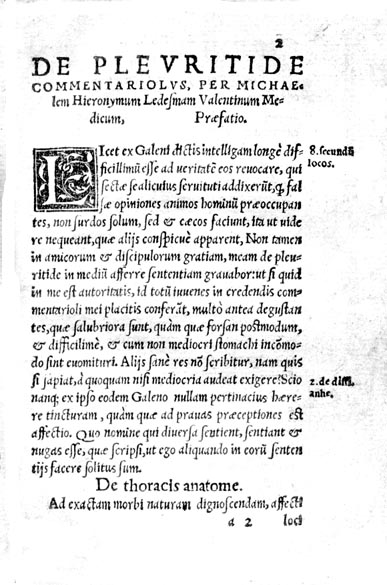 2
DE PLEVRITIDE
COMMENTARIOLVS, PER MICHAE-
lem Hieronymum Ledesmam Valentinum Me-
dicum, Præfatio.
LIcet ex Galeni dictis intelligam longè dif-
ficillimũ esse ad veritatẽ eos reuocare, qui
sectæ se alicuius seruituti addixerũt, ꝙ fal
sæ opiniones animos hominũ præoccupan
tes, non surdos solum, sed & cæcos faciunt, ita ut uide
re nequeant, quæ alijs conspicuè apparent, Non tamen
in amicorum & discipulorum gratiam, meam de pleu-
ritide in mediũ afferre sententiam grauabor: ut si quid
in me est autoritatis, id totũ iuuenes in credendis com-
mentarioli mei placitis conferãt, multò antea degustan
tes, quæ salubriora sunt, quàm quæ forsan postmodum,
& difficilimè, & cum non mediocri stomachi incõmo-
do sint euomituri. Alijs sanè res nõ scribitur, nam quis
si sapiat, à quoquam nisi mediocria audeat exigere? Scio
nanq; ex ipso eodem Galeno nullam pertinacius hære-
re tincturam, quàm quæ ad prauas præceptiones est
affectio. Quo nomine qui diuersa sentient, sentiant &
nugas esse, quæ scripsi, ut ego aliquando in eorũ senten
tijs facere solitus sum.
8. secundũ
locos.
2. de diffi.
anhe.
De thoracis anatome.
Ad exactam morbi naturam dignoscendam, affecti
a 2 loci